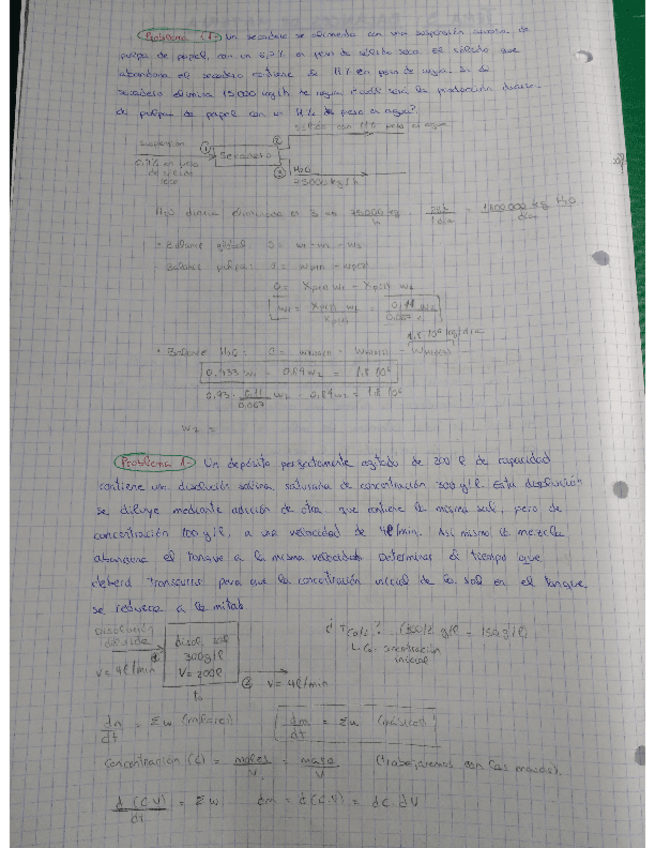 Problema 1. Un secadero se alimenta con una suspensión acuosa de
pulpa de papel, con un 6,7% en peso de sólido seco. El sólido que
abandona el secadero contiene un 11% en peso de agua. Si el
secadero elimina 75000 kg/h de agua ¿cuál será la producción diaria
de pulpa de papel con un 11% de peso en agua?
sólido con 11% peso en agua
suspensión
6,7% en peso
de sólido
seco
1
Secadero
2
3
H2O
75000 kg/h
H2O diaria eliminada en 3 = 75000 kg/h · 24h/1día = 1800000 kg H2O/día
Balance global 0 = w1 - w2 - w3
Balance pulpa: 0 =
0 = Xp(1) w1 - Xp(2) w2
w1 = Xp(2) w2 / Xp(1) =
1,8 · 10⁶ kg/día
Balance H2O: 0 =
0,933 w1 - w2 = 1,8 · 10⁶
0,93 · /0,067 w2 - w2 = 1,8 10⁶
w2 =
Problema 1. Un depósito perfectamente agitado de 200 l de capacidad
contiene una disolución salina saturada de concentración 300 g/l. Esta disolución
se diluye mediante adición de otra que contiene la misma sal, pero de
concentración 100 g/l, a una velocidad de 4l/min. Así mismo, la mezcla
abandona el tanque a la misma velocidad. Determinar el tiempo que
deberá transcurrir para que la concentración inicial de la sal en el tanque
se reduzca a la mitad.
Disolución
diluida
V = 4l/min
1
disol. sal
300 g/l
V = 200l
t₀
2 V = 4l/min
¿ T C₀/2? (300/2 g/l = 150 g/l)
C₀ = concentración
inicial
dn/dt = Σw (molares)
dm/dt = Σw (másicos)
Concentración (C) = moles/V = masa/V (trabajaremos con las masas).
d(C·V)/dt = Σw dm = d(C·V) = dC·dV